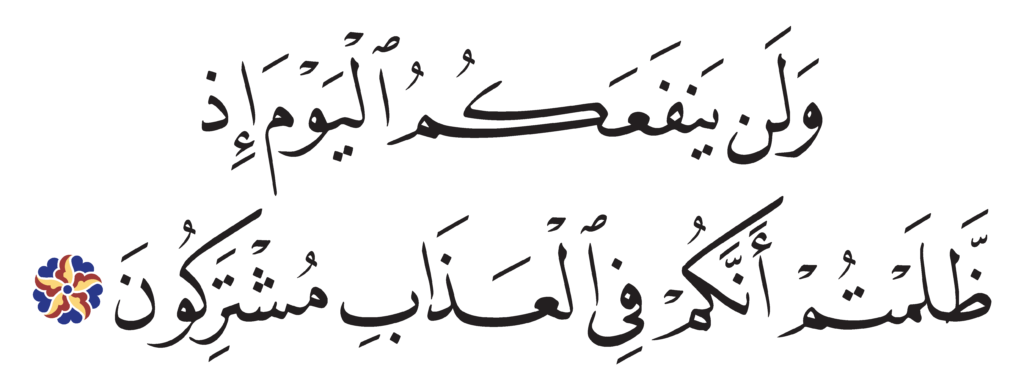 وَلَن يَنفَعَكُمُ ٱلْيَوْمَ إِذ
ظَّلَمْتُمْ أَنَّكُمْ فِى ٱلْعَذَابِ مُشْتَرِكُونَ